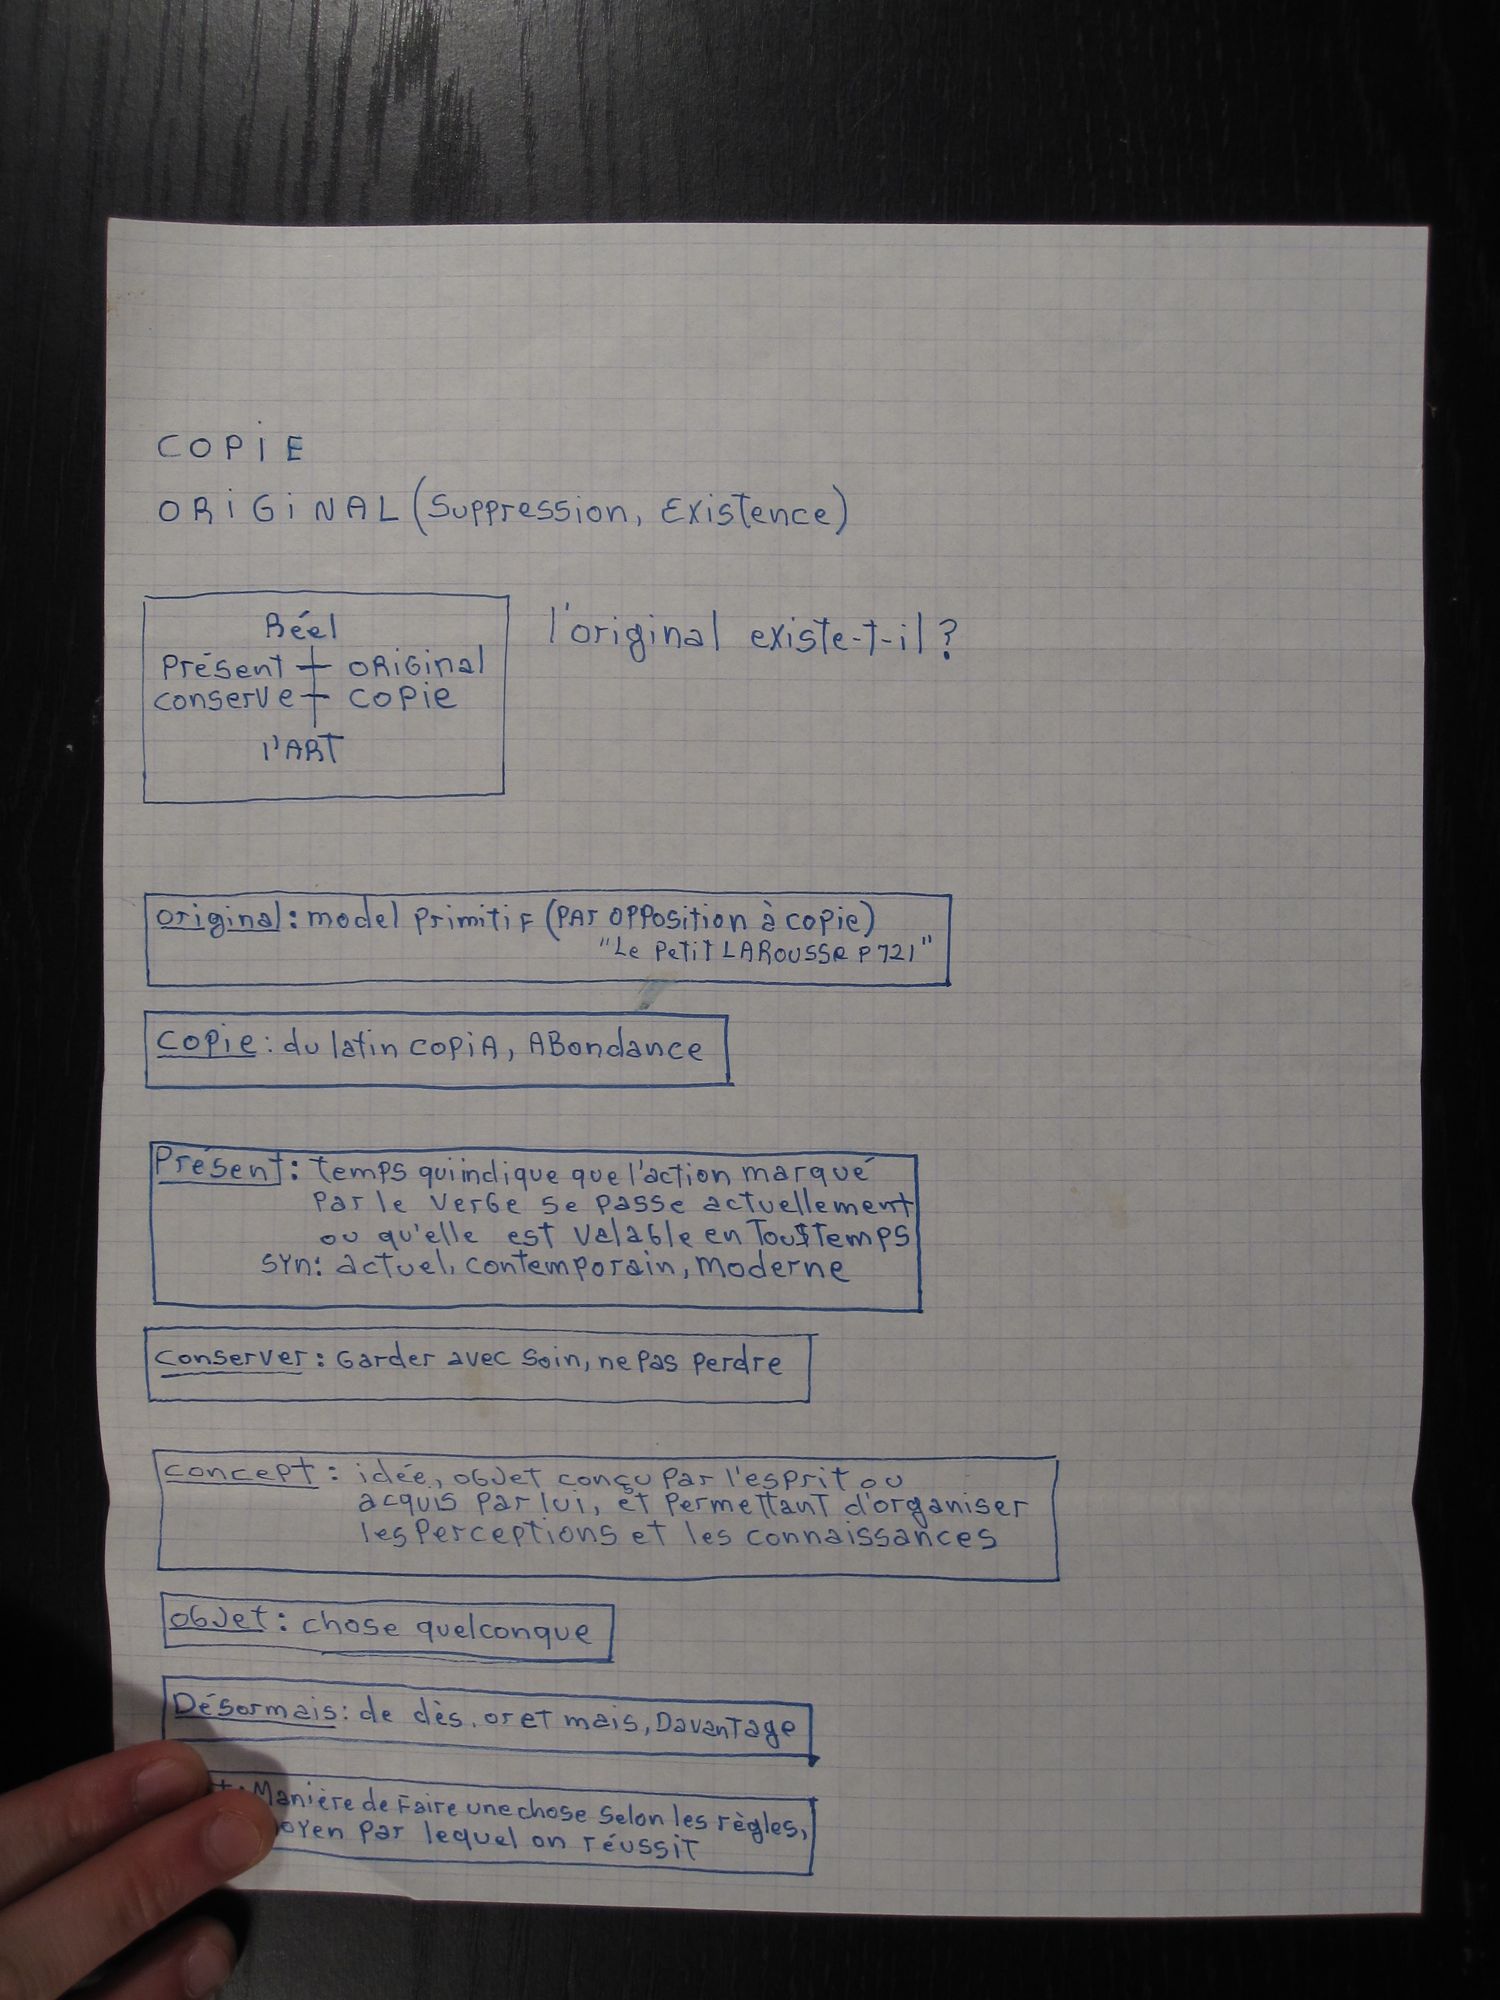 COPIE
ORIGINAL (Suppression, Existence)
Réel
Présent + ORIGINAL
conserve + COPIE
l'ART
l'original existe-t-il?
original: model primitif (PAr OPPosition à copie)
"Le Petit LARousse P 721"
Copie: du latin COPIA, ABondance
Présent: temps qui indique que l'action marqué
Par le verbe se passe actuellement
ou qu'elle est valable en Tous Temps
Syn: actuel, contemporain, moderne
Conserver: Garder avec Soin, ne pas perdre
concept: idée, objet conçu par l'esprit ou
acquis par lui, et permettant d'organiser
les Perceptions et les connaissances
objet: chose quelconque
Désormais: de dès, or et mais, Davantage
Manière de Faire une chose Selon les règles,
par lequel on réussit